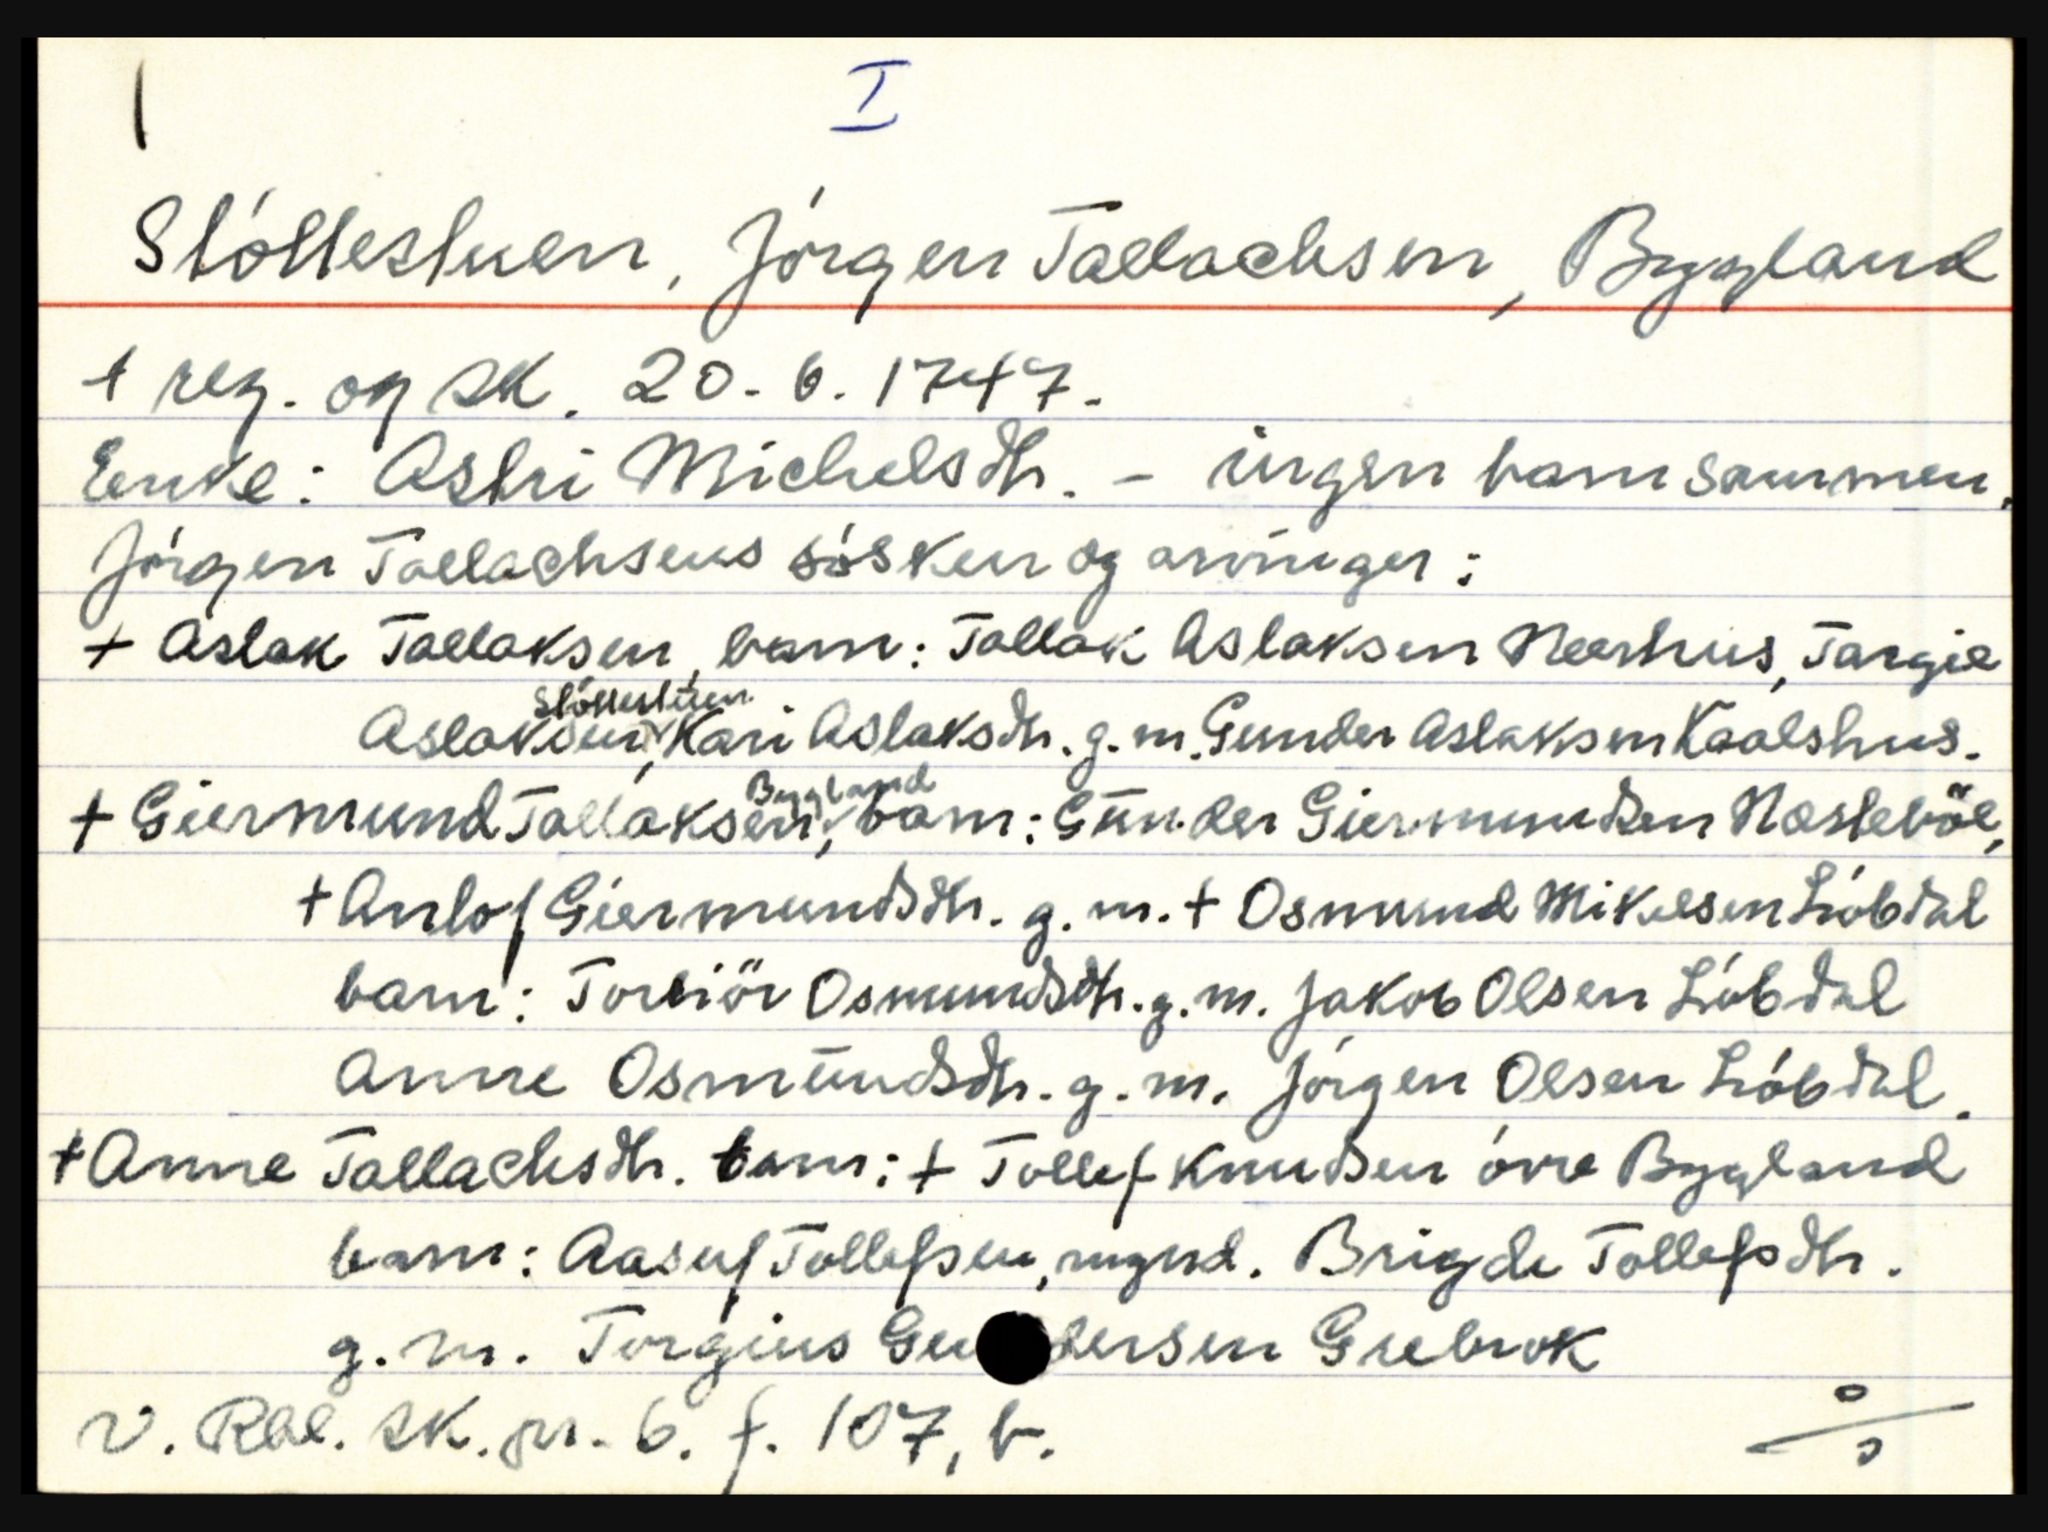 I
Stóttestuen, Jórgen Tallachsen, Bygland
† reg. og sk. 20.6.1747.
Enke: Astri Michelsdtr. - ingen barn sammen.
Jórgen Tallachsens sósken og arvinger:
† Aslak Tallaksen, barn: Tallak Aslaksen Neershus, Targie
Stóttestuen
Aslaksen, Kari Aslaksdtr. g.m. Gunder Aslaksen Kaalshus.
Bygland
† Giermund Tallaksen, barn: Gūnder Giermundsen Nesteböe,
† Anlof Giermundsdtr. g.m. † Osmund Mikelsen Lióbdal
barn: Torbiör Osmundsdtr. g.m. Jakob Olsen Lióbdal
Anne Osmūndsdtr. g.m. Jórgen Olsen Lióbdal.
† Anne Tallachsdtr. barn: † Tollef Knudsen óvre Bygland
barn: Aasuf Tollefsen, mynd. Brigde Tollefsdtr.
g.m. Torgius Gundersen Grebrok
v. Rbl. sk. pr. 6. f. 107, b.